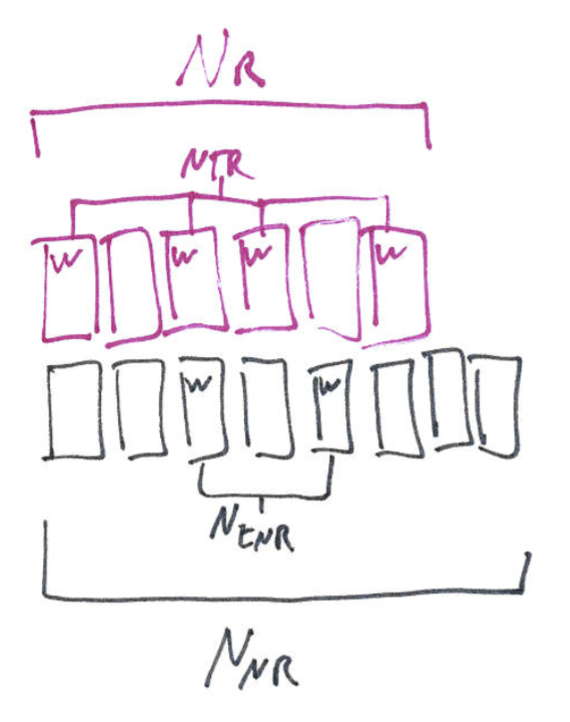 NR
NTR
W W W W
W W
NENR
NNR